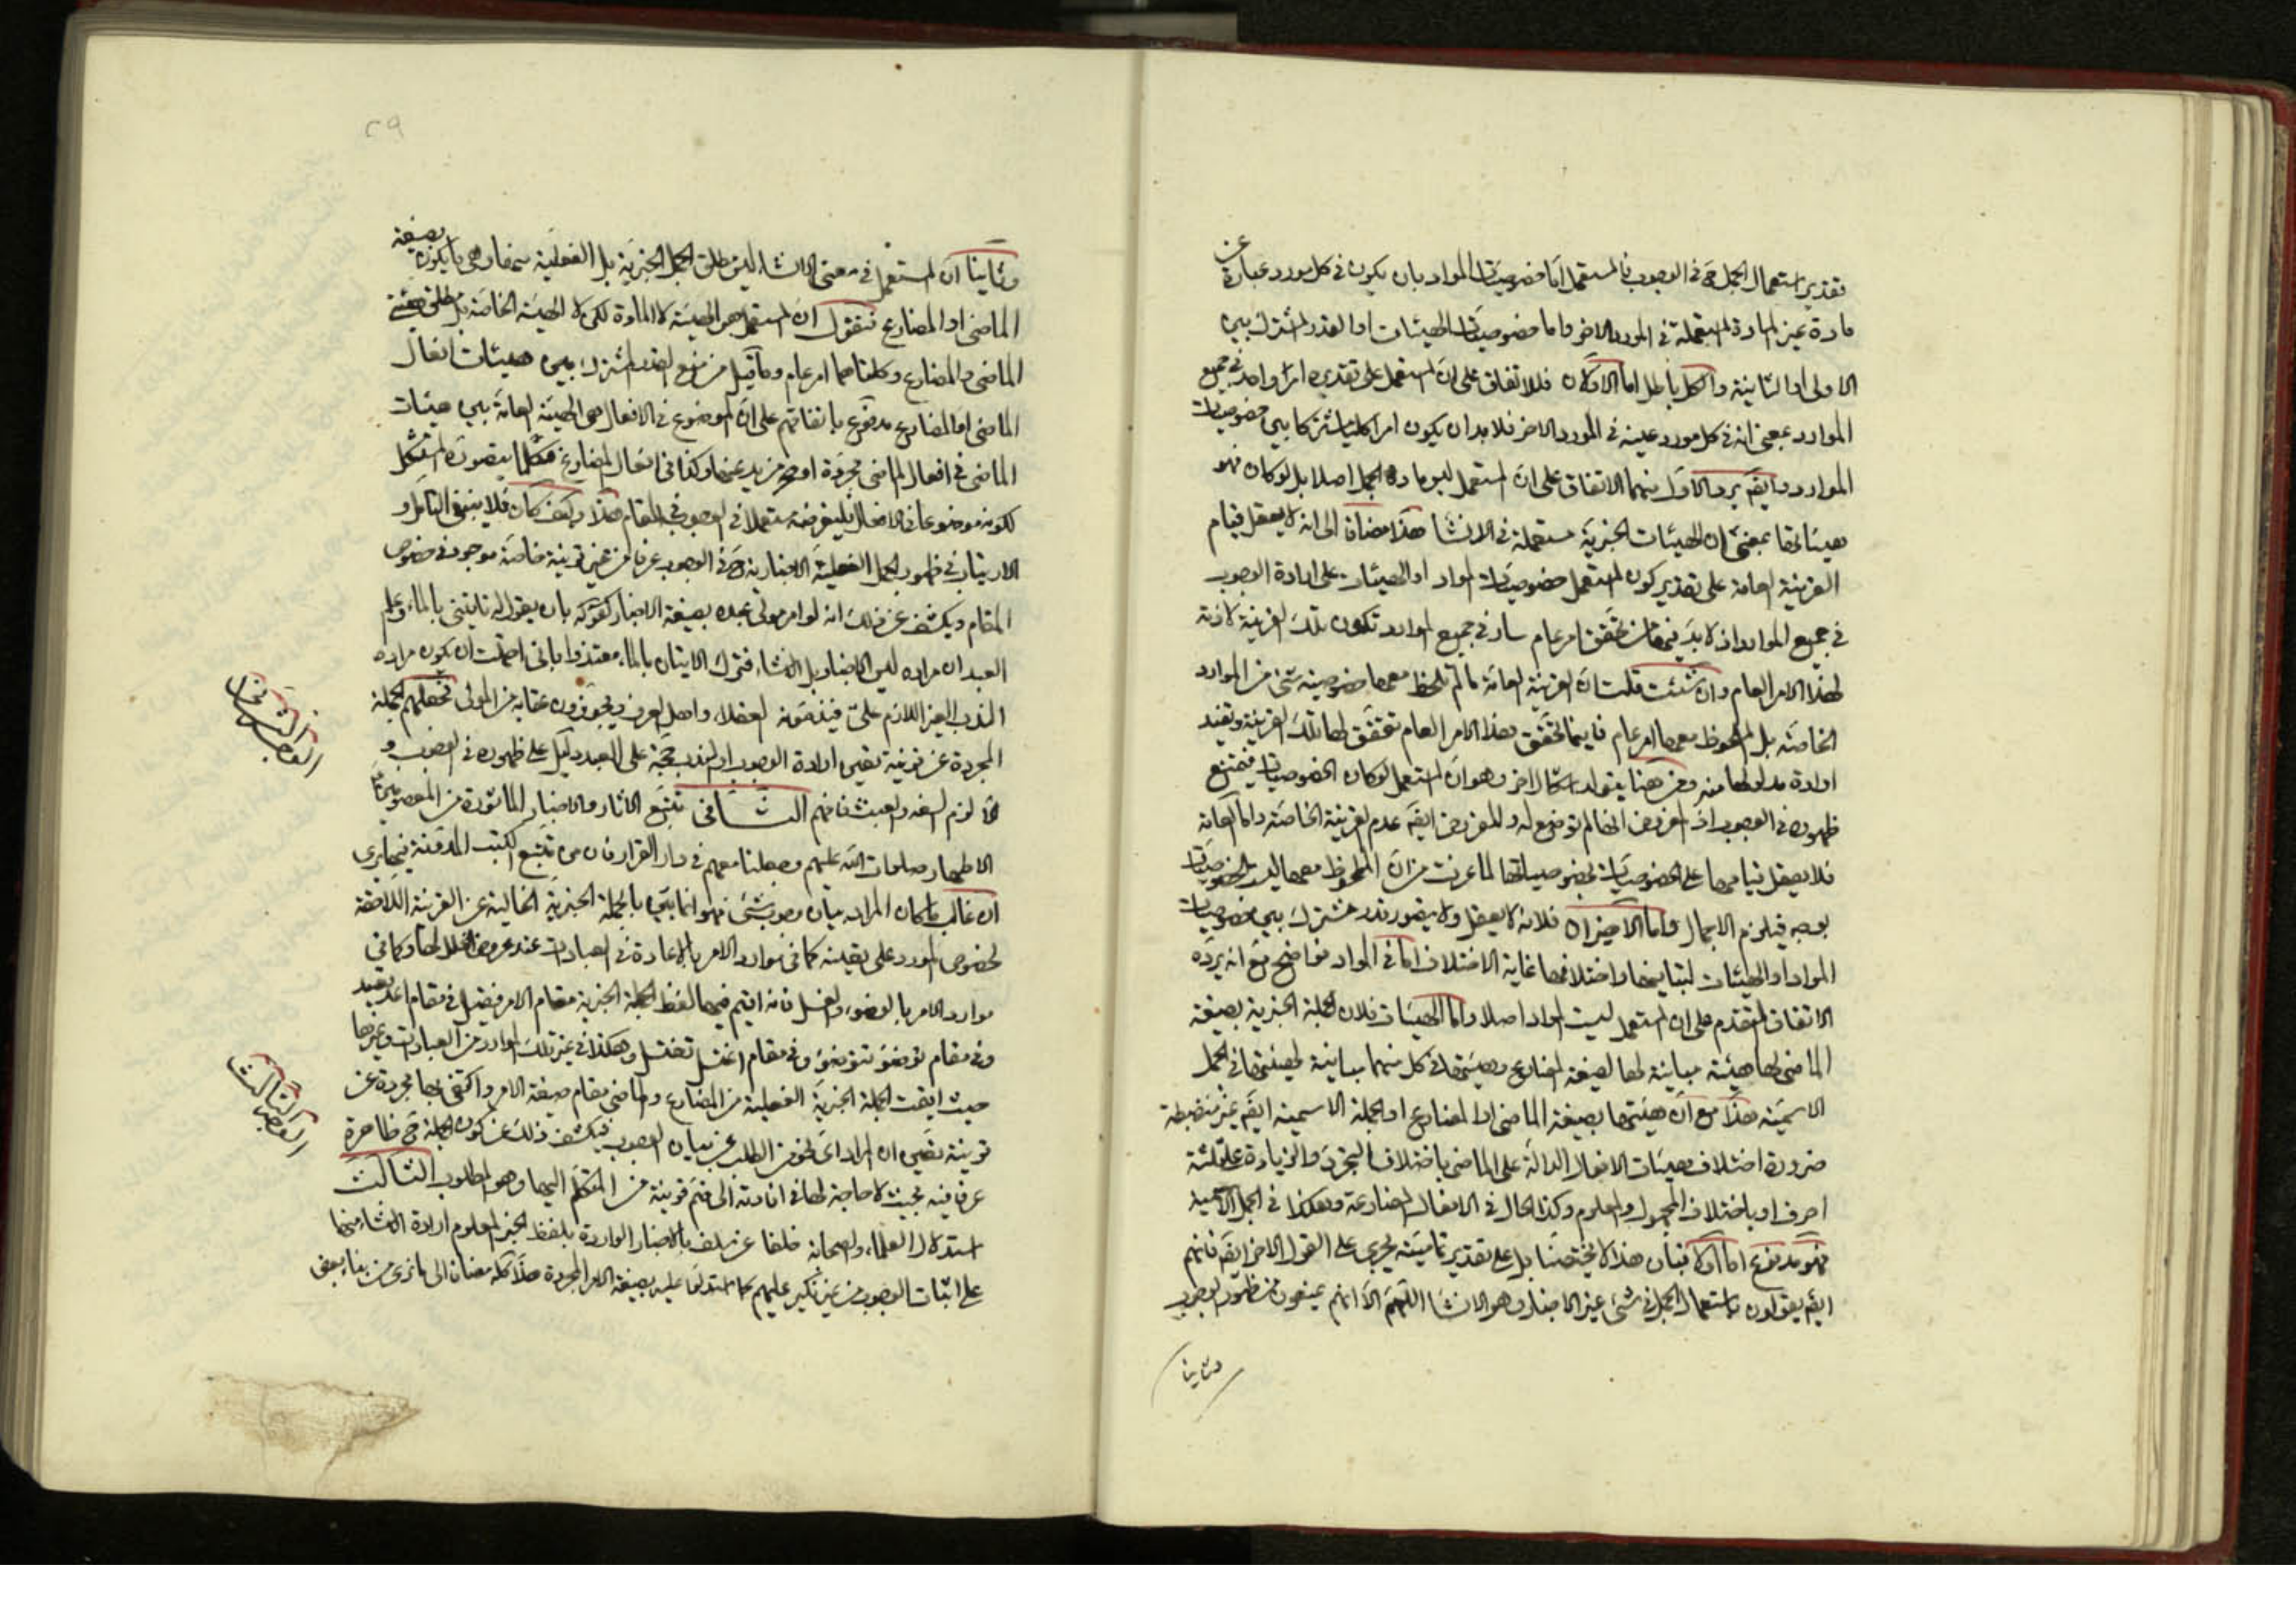 عن
تقدير استعمال الجمل ح في الوجوب فالمستعمل اما خصوصيات المواد بان يكون في كل مورد عبارة
مادة غير المادة المستعملة في المورد الاخر واما خصوصيات الهيئات او القدر المشترك بين
الاولى او الثانية والكل باطل اما الاولان فللاتفاق على ان المستعمل على تقديره امر واحد في جميع
الموارد بمعنى انه في كل مورد عينه في المورد الاخر فلا بد ان يكون امرا كليا مشتركا بين خصوصيات
الموارد وايضا يرد الاول منهما الاتفاق على ان المستعمل ليس مادة الجمل اصلا بل لو كان فهو
هيئاتها بمعنى ان الهيئات الخبرية مستعملة في الانشا هذا مضافا الى انه لا يعقل قيام
القرينة العامة على تقدير كون المستعمل خصوصيات المواد او الهيئات على ارادة الوجوب
في جميع الموارد اذ لا بد فيها من تحقق امر عام سار في جميع الموارد تكون تلك القرينة لازمة
لهذا الامر العام وان شئت قلت ان القرينة العامة ما لم تلحظ معها خصوصية شئ من الموارد
الخاصة بل الملحوظ معها امر عام فاينما تحقق هذا الامر العام تحقق لها تلك القرينة وتفيد
ارادة مدلولها منه ومن هنا يتولد اشكال اخر وهو ان المستعمل لو كان الخصوصيات فيمتنع
ظهوره في الوجوب اذ المفروض انها لم توضع له والمفروض ايضا عدم القرينة الخاصة واما العامة
فلا يعقل قيامها على الخصوصيات بخصوصياتها لما عرفت من ان الملحوظ معها ليس الخصوصيات
بوجه فيلزم الاجمال واما الاخيران فلانه لا يعقل ولا يتصور قدر مشترك بين خصوصيات
المواد او الهيئات لتباينها واختلافها غاية الاختلاف اما في المواد فواضح مع انه يرده
الاتفاق المتقدم على ان المستعمل ليست المواد اصلا واما الهيئات فلان الجملة الخبرية بصيغة
الماضي لها هيئة مباينة لها لصيغة المضارع وهيئتها في كل منهما مباينة لهيئتها في الجمل
الاسمية هذا مع ان هيئتها بصيغة الماضي او المضارع او الجملة الاسمية ايضا غير منضبطة
ضرورة اختلاف هيئات الافعال الدالة على الماضي باختلاف التجرد والزيادة على ثلثة
احرف او باختلاف المجهول والمعلوم وكذا الحال في الافعال المضارعة وهكذا في الجمل الاسمية
فهو مدفوع اما اولا فبان هذا لا يختص بنا بل على تقدير تماميته يجري على القول الاخر ايضا فانهم
ايضا يقولون باستعمال الجمل في شئ غير الاخبار وهو الانشا اللهم الا انهم يمنعون من ظهور الوجوب
وثانيا
٢٩
وثانيا ان المستعمل في معنى الانشاء ليس مطلق الجمل الخبرية بل الفعلية منها وهي ما يكون بصيغة
الماضي او المضارع فنقول ان المستعمل هو الهيئة لا المادة لكن لا الهيئة الخاصة بل مطلق هيئة
الماضي والمضارع وكلتاهما امر عام وما قيل من منع القدر المشترك بين هيئات افعال
الماضي او المضارع مدفوع باتفاقهم على ان الموضوع في الافعال هي الهيئة العامة بين هيئات
الماضي في افعال الماضي مجردة او مزيد عنها وكذا في افعال المضارع فكلما يتصوره المستشكل
لكونه موضوعا في الافعال فليفرضه مستعملا في الوجوب في المقام هذا وكيف كان فلا ينبغي التامل و
الارتياب في ظهور الجمل الفعلية الاخبارية ح في الوجوب عرفا من غير قرينة خاصة موجودة في خصوص
المقام ويكشف عن ذلك انه لو امر مولى عبده بصيغة الاخبار كقوله بان يقول له تايتني بالماء وعلم
العبد ان مراده ليس الاخبار بل الانشاء فترك الاتيان بالماء معتذرا باني احتملت ان يكون مراده
الندب الغير اللازم علي فيذمونه العقلاء واهل العرف ويجوزون عقابه من المولى فجعلهم الجملة
المجردة عن قرينة تعين ارادة الوجوب او الندب حجة على العبد دليل على ظهوره في الوجوب و
الا لزم السفه والعبث فافهم الثاني تتبع الاثار والاخبار الماثورة من المعصومين
الاطهار صلوات الله عليهم وجعلنا معهم في دار القرار فان من تتبع الكتب المدونة فيها يرى
ان غالب ما كان المراد بيان وجوب شئ فهو انما بين بالجملة الخبرية الخالية عن القرينة اللاحقة
لخصوص المورد على تعينه كما في موارد الامر بالاعادة في العبادات عند عروض الخلل لها وكما في
موارد الامر بالوضوء والغسل فانه اقيم فيهما لفظ الجملة الخبرية مقام الامر فيقول في مقام اعد يعيد
وفي مقام توضؤ تتوضؤ وفي مقام اغتسل تغتسل وهكذا في غير تلك الموارد من العبادات وغيرها
حيث اقيمت الجملة الخبرية الفعلية من المضارع والماضي مقام صيغة الامر واكتفى بها مجردة عن
قرينة تعين ان المراد اي نحو من الطلب عن بيان الوجوب فيكشف ذلك عن كون الجملة ح ظاهرة
عرفا فيه بحيث لا حاجة لها في افادته الى ضم قرينة من المتكلم اليها وهو المطلوب الثالث
استدلال العلماء والصحابة خلفا عن سلف بالاخبار الواردة بلفظ الخبر المعلوم ارادة الانشاء منها
على اثبات الوجوب من غير نكير عليهم كما استدلوا عليه بصيغة الامر المجردة هذا كله مضافا الى ما نرى من بناء بعض
الوجه الثاني
الوجه الثالث